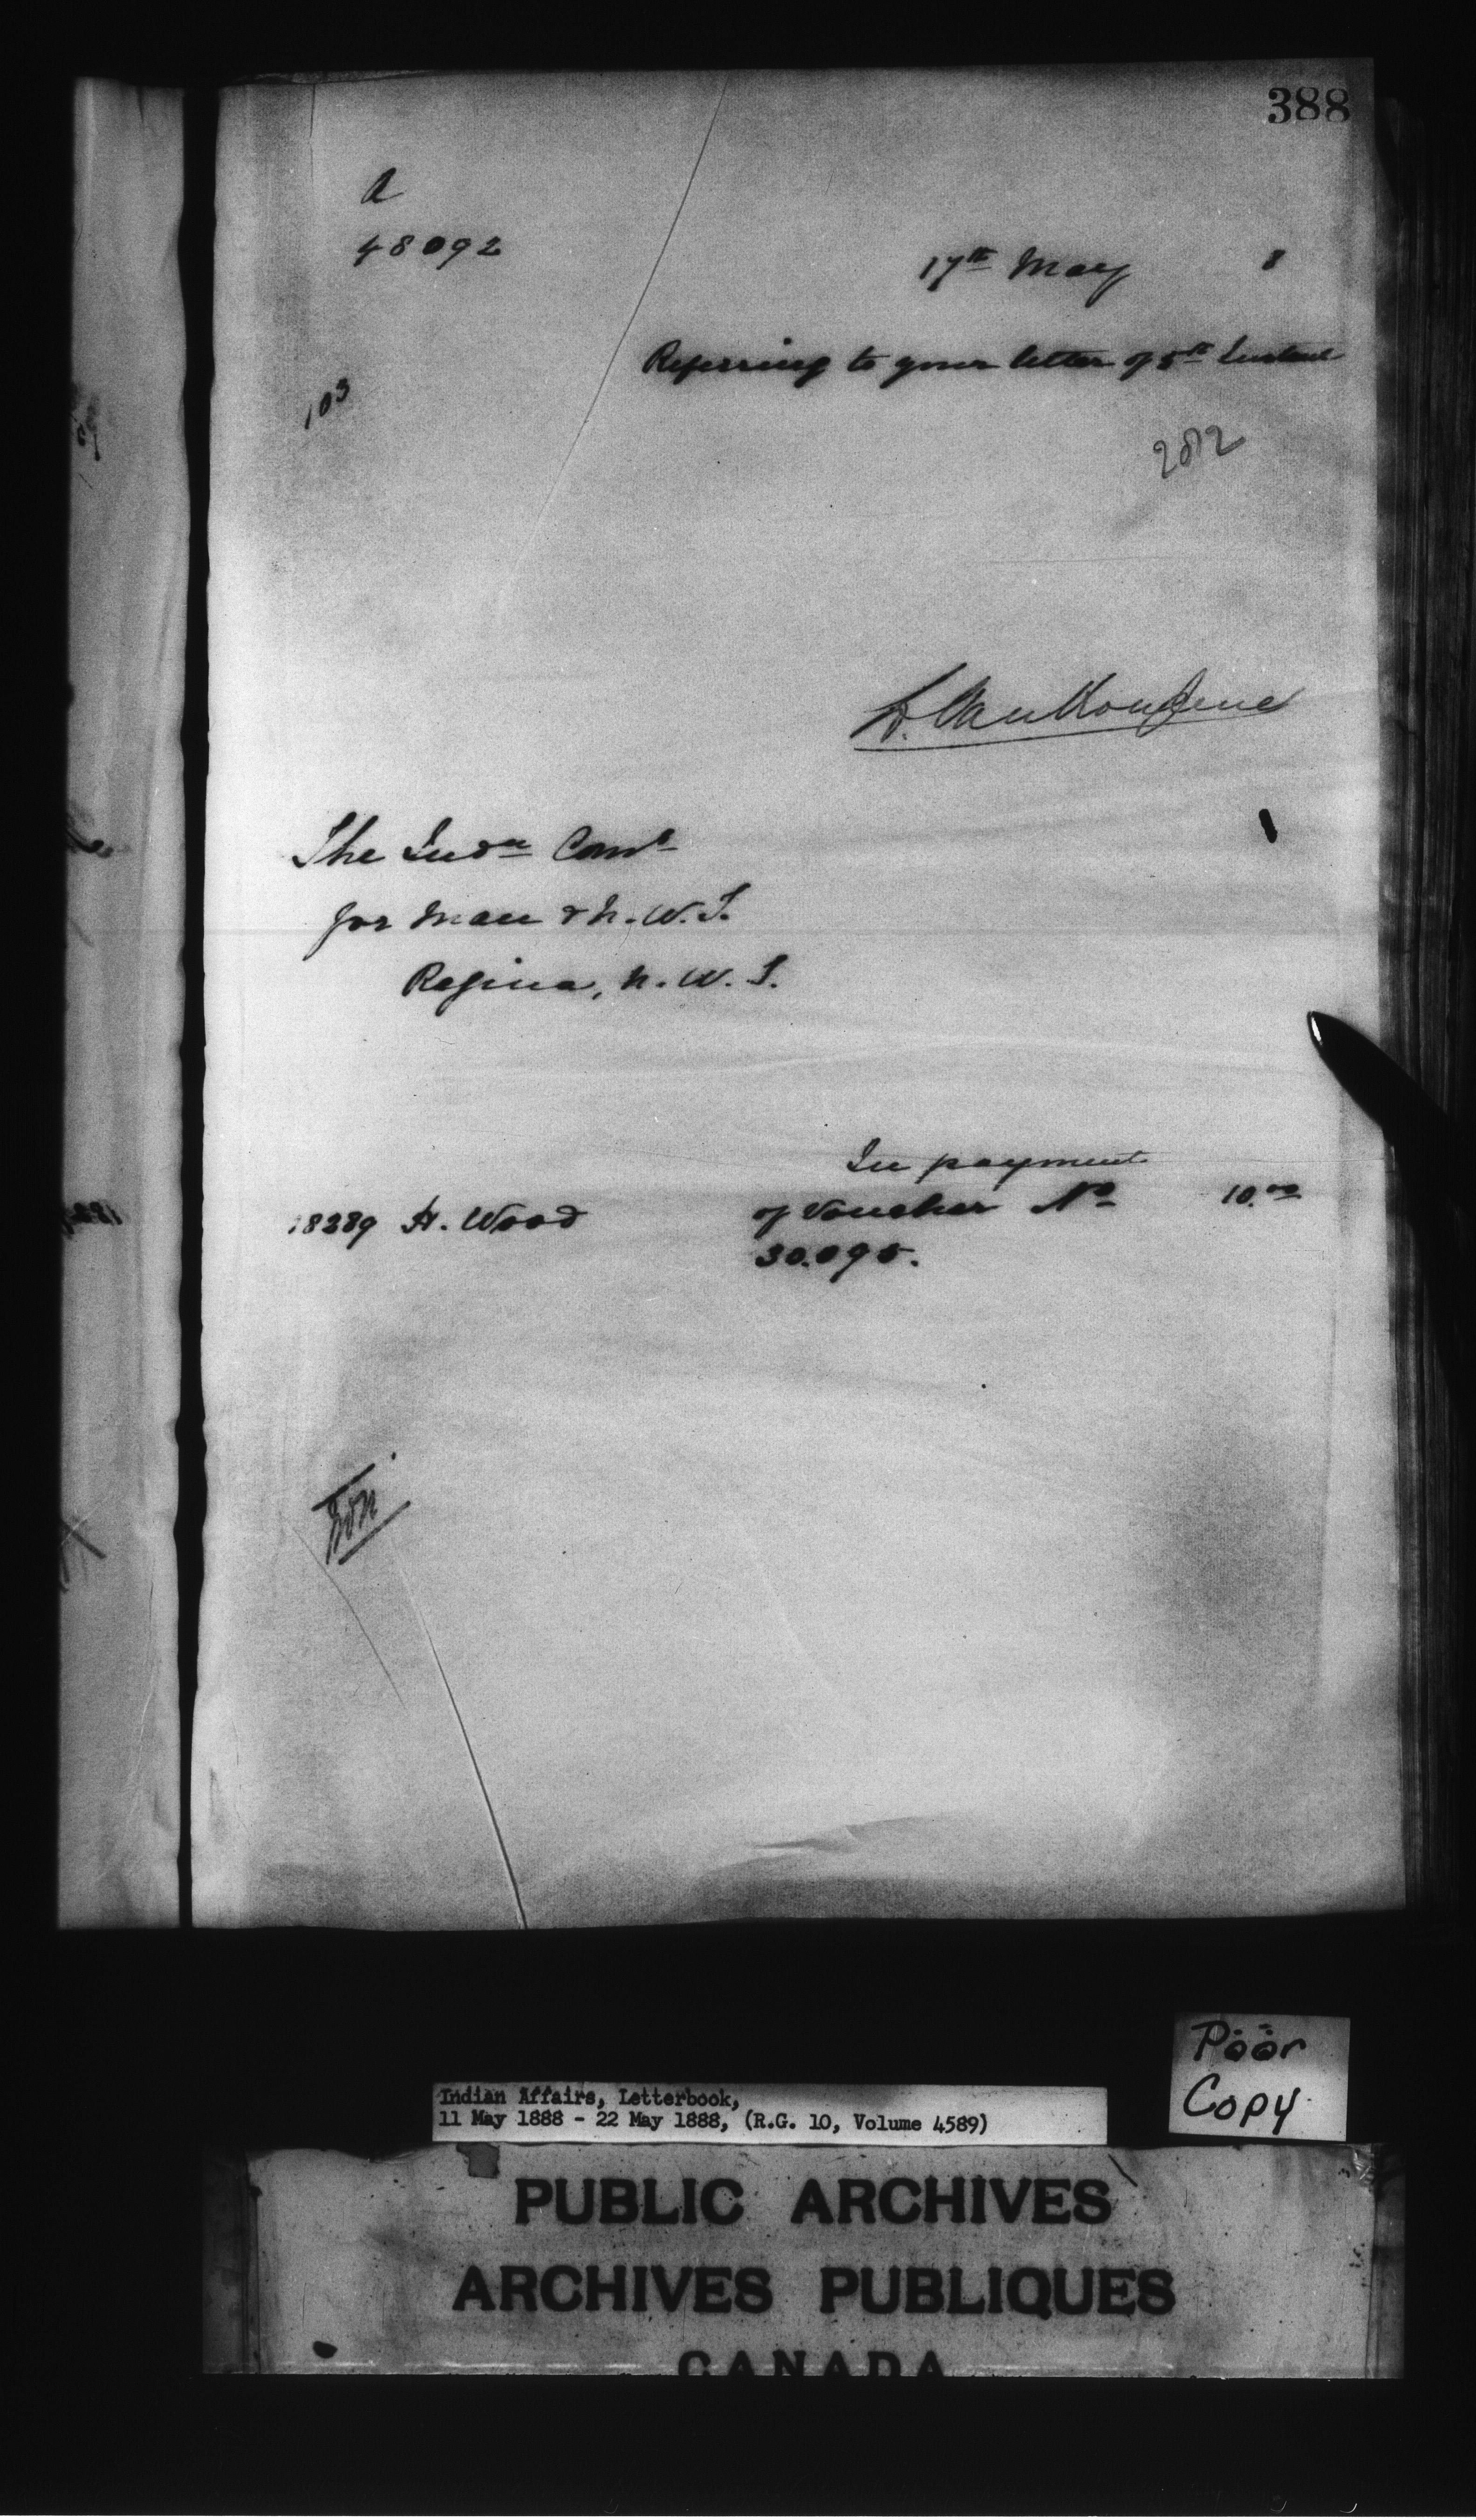 388
A
48092
17th May 8
Referring to your letter of 5th Instant
103
2012
L. VanKoughnet
The Indn Comr
for Man & N.W.T.
Regina, N.W.T.
In payment
18289 H. Wood of Voucher No 10.00
30.095.
Poor
Copy
Indian Affairs, Letterbook,
11 May 1888 - 22 May 1888, (R.G. 10, Volume 4589)
PUBLIC ARCHIVES
ARCHIVES PUBLIQUES
CANADA